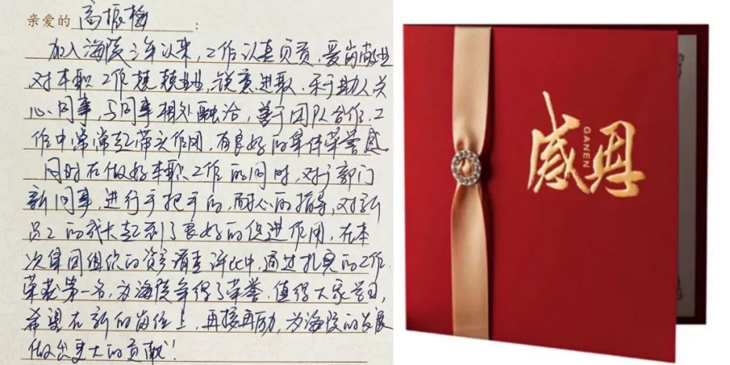 亲爱的 高振梅：
加入海陵3年以来，工作认真负责，爱岗敬业
对本职工作兢兢业业，锐意进取，乐于助人关
心同事，与同事相处融洽，善于团队合作，工
作中常常起带头作用，有良好的集体荣誉感
同时在做好本职工作的同时，对于部门
新同事，进行手把手的，耐心的指导，对新
员工的成长起到了良好的促进作用，在本
次集团组织的劳资调查评比中，通过扎实的工作
荣获第一名，为海陵争得了荣誉，值得大家学习，
希望在新的岗位上，再接再励，为海陵的发展
做出更大的贡献！
感恩
GANEN